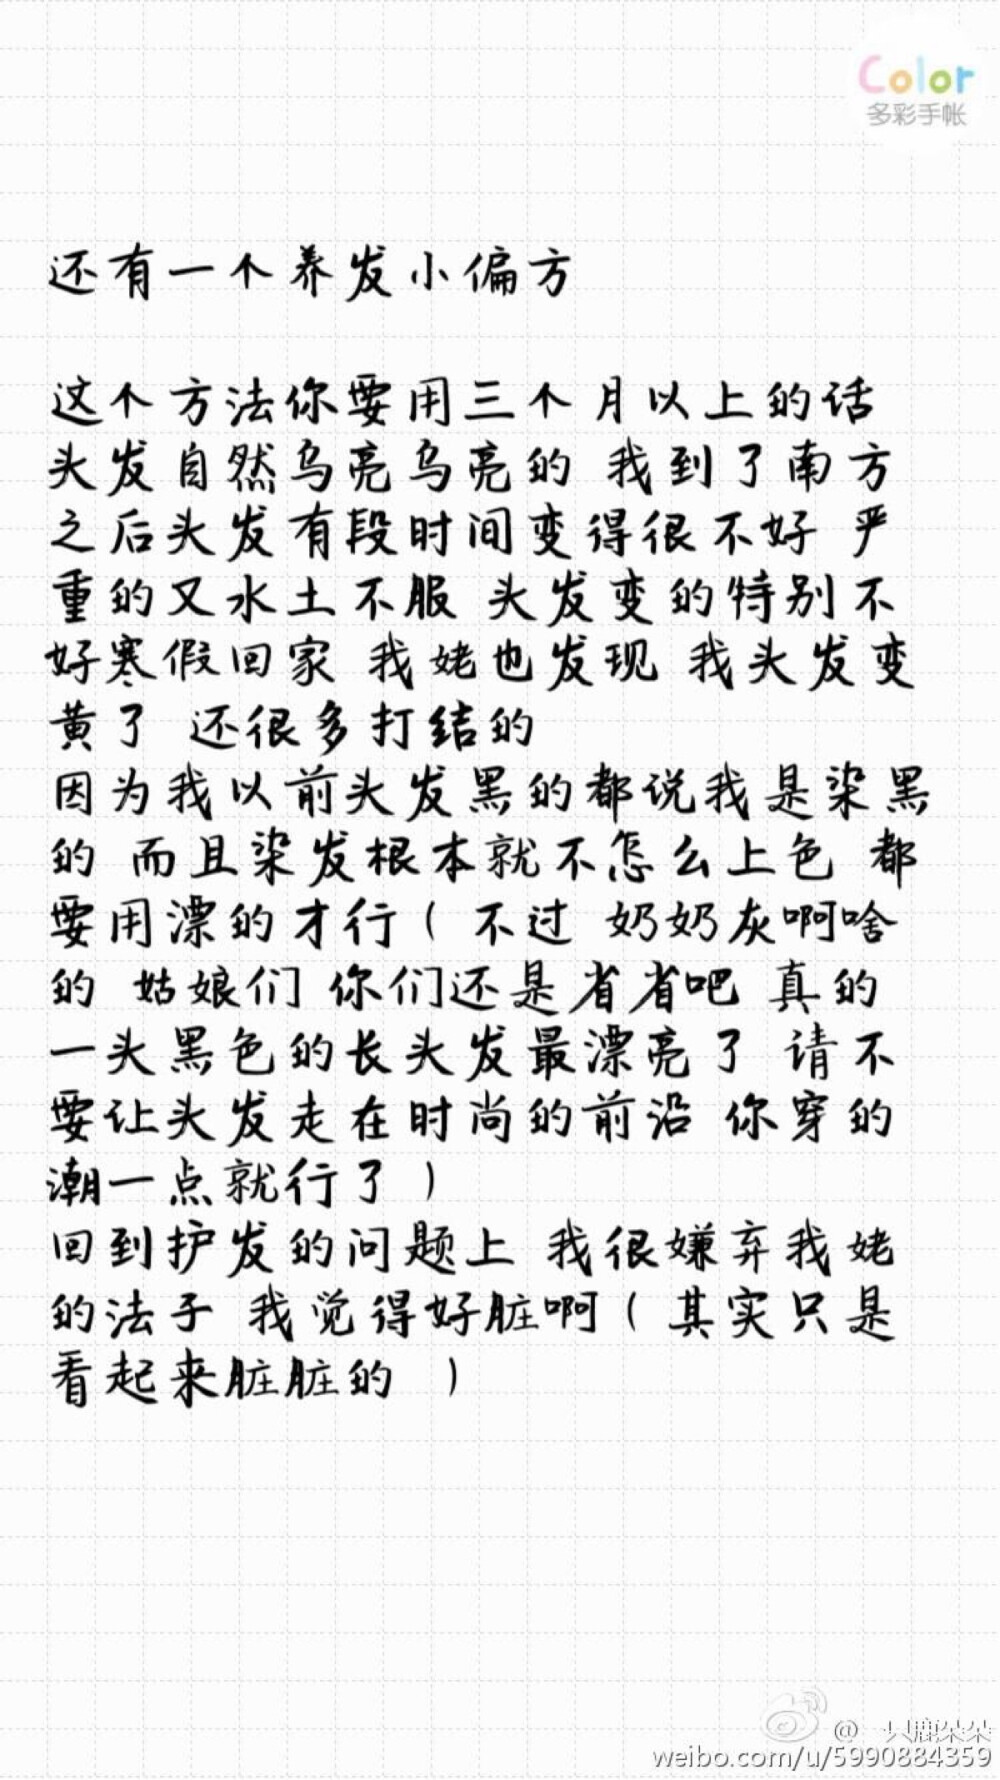 Color
多彩手帐
还有一个养发小偏方
这个方法你要用三个月以上的话
头发自然乌亮乌亮的 我到了南方
之后头发有段时间变得很不好 严
重的又水土不服 头发变的特别不
好寒假回家 我姥也发现 我头发变
黄了 还很多打结的
因为我以前头发黑的都说我是染黑
的 而且染发根本就不怎么上色 都
要用漂的才行( 不过 奶奶灰啊啥
的 姑娘们 你们还是省省吧 真的
一头黑色的长头发最漂亮了 请不
要让头发走在时尚的前沿 你穿的
潮一点就行了 )
回到护发的问题上 我很嫌弃我姥
的法子 我觉得好脏啊( 其实只是
看起来脏脏的 )
@一只鹿朵朵
weibo.com/u/5990884359